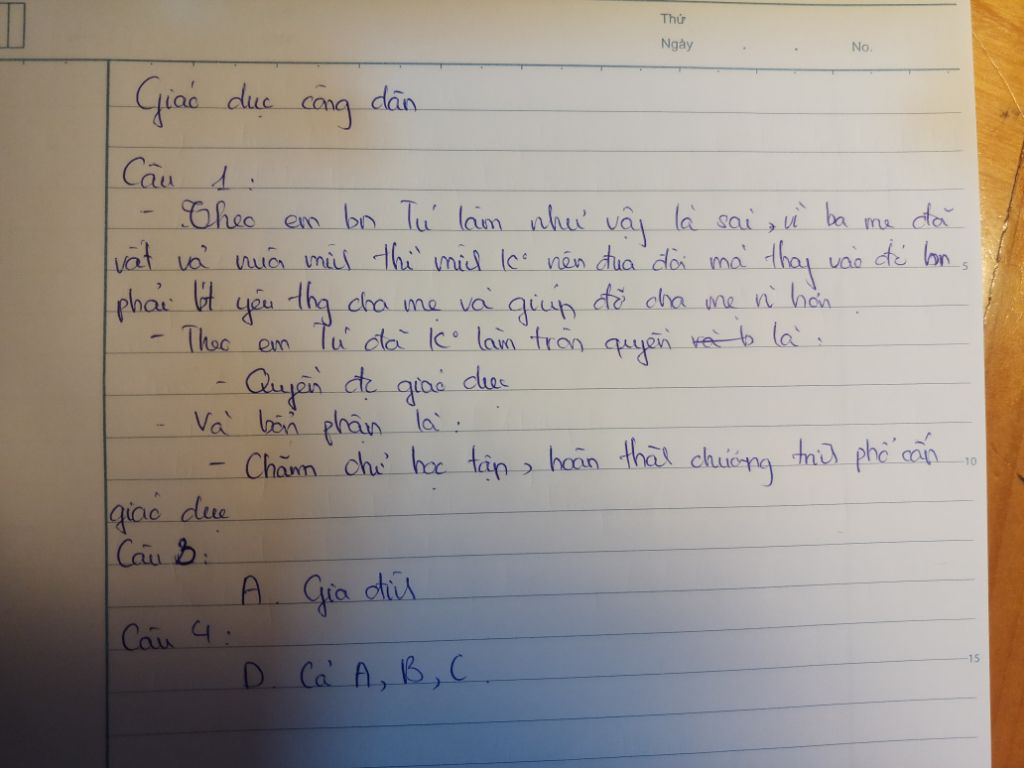 Thứ
Ngày . . No.
Giáo dục công dân
Câu 1 :
- Theo em bn Tú làm như vậy là sai, vì ba mẹ đã
vất vả nuôi mìh thì mìh k° nên đua đòi mà thay vào đó bn 5
phải bít yêu thg cha mẹ và giúp đỡ cha mẹ n` hơn
- Theo em Tú đã k° làm tròn quyền và b là :
- Quyền đc giáo dục
- Và bổn phận là :
- Chăm chỉ học tập, hoàn thàh chương trìh phổ cấp 10
giáo dục
Câu 3:
A. Gia đìh
Câu 4 :
D. Cả A, B, C. 15